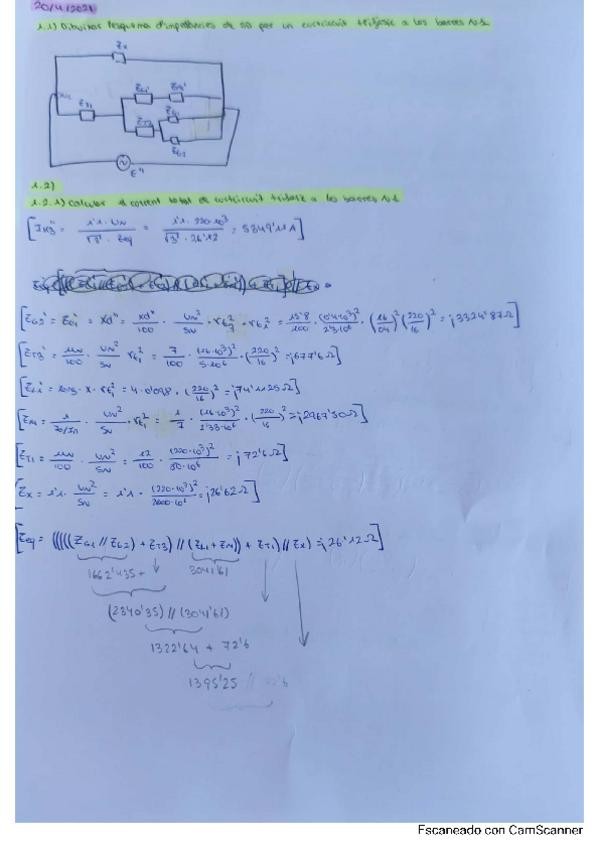 20/4/2021
1.1) Dibuixar l'esquema d'impedàncies de SD per un curtcircuit trifàsic a les barres N.1
Zx
ZT1
ZL1'
ZM'
ZT3'
ZG1
ZG2
E"
1.2)
1.2.1) Calcular el corrent total de curtcircuit trifàsic a les barres N.1
[I"K3 = 1'1·UN / √3·Zeq = 1'1·220·10³ / √3·26'12 = 5349'11A]
[ZG2' = ZG1' = Xd" = xd"/100 · UN²/SN · rt3² · rt1² = 15'8/100 · (0'4·10³)²/2'3·10⁶ · (16/0'4)² (220/16)² = j3324'87Ω]
[ZT3' = μN/100 · UN²/SN · rt1² = 7/100 · (16·10³)²/5·10⁶ · (220/16)² = j677'6Ω]
[ZL1' = long·x·rt1² = 4·0'098·(220/16)² = j74'1125Ω]
[ZM = 1/Ia/In · UN²/SN · rt1² = 1/7 · (16·10³)²/2'33·10⁶ · (220/16)² = j2967'50Ω]
[ZT1 = μN/100 · UN²/SN = 12/100 · (220·10³)²/80·10⁶ = j72'6Ω]
[Zx = 1'1 · UN²/SN = 1'1 · (220·10³)²/2000·10⁶ = j26'62Ω]
[Zeq = (((((ZG1 // ZG2) + ZT3) // (ZL1 + ZM)) + ZT1) // Zx) = j26'12Ω]
1662'435 + 3041'61
(2340'35) // (3041'61)
1322'64 + 72'6
1395'25
Escaneado con CamScanner